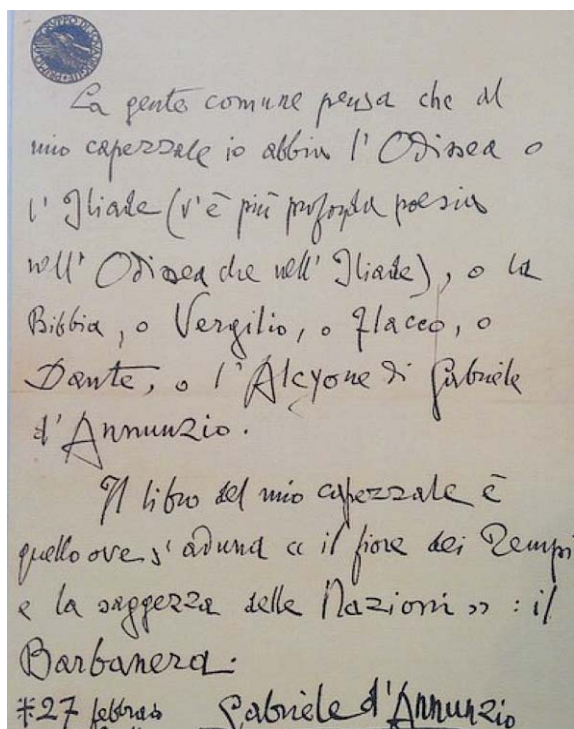 La gente comune pensa che al
mio capezzale io abbia l'Odissea o
l'Iliade (v'è più profonda poesia
nell'Odissea che nell'Iliade), o la
Bibbia, o Vergilio, o Flacco, o
Dante, o l'Alcyone di Gabriele
d'Annunzio.
Il libro del mio capezzale è
quello ove s'aduna « il fiore dei Tempi
e la saggezza delle Nazioni » : il
Barbanera.
*27 febbraio Gabriele d'Annunzio